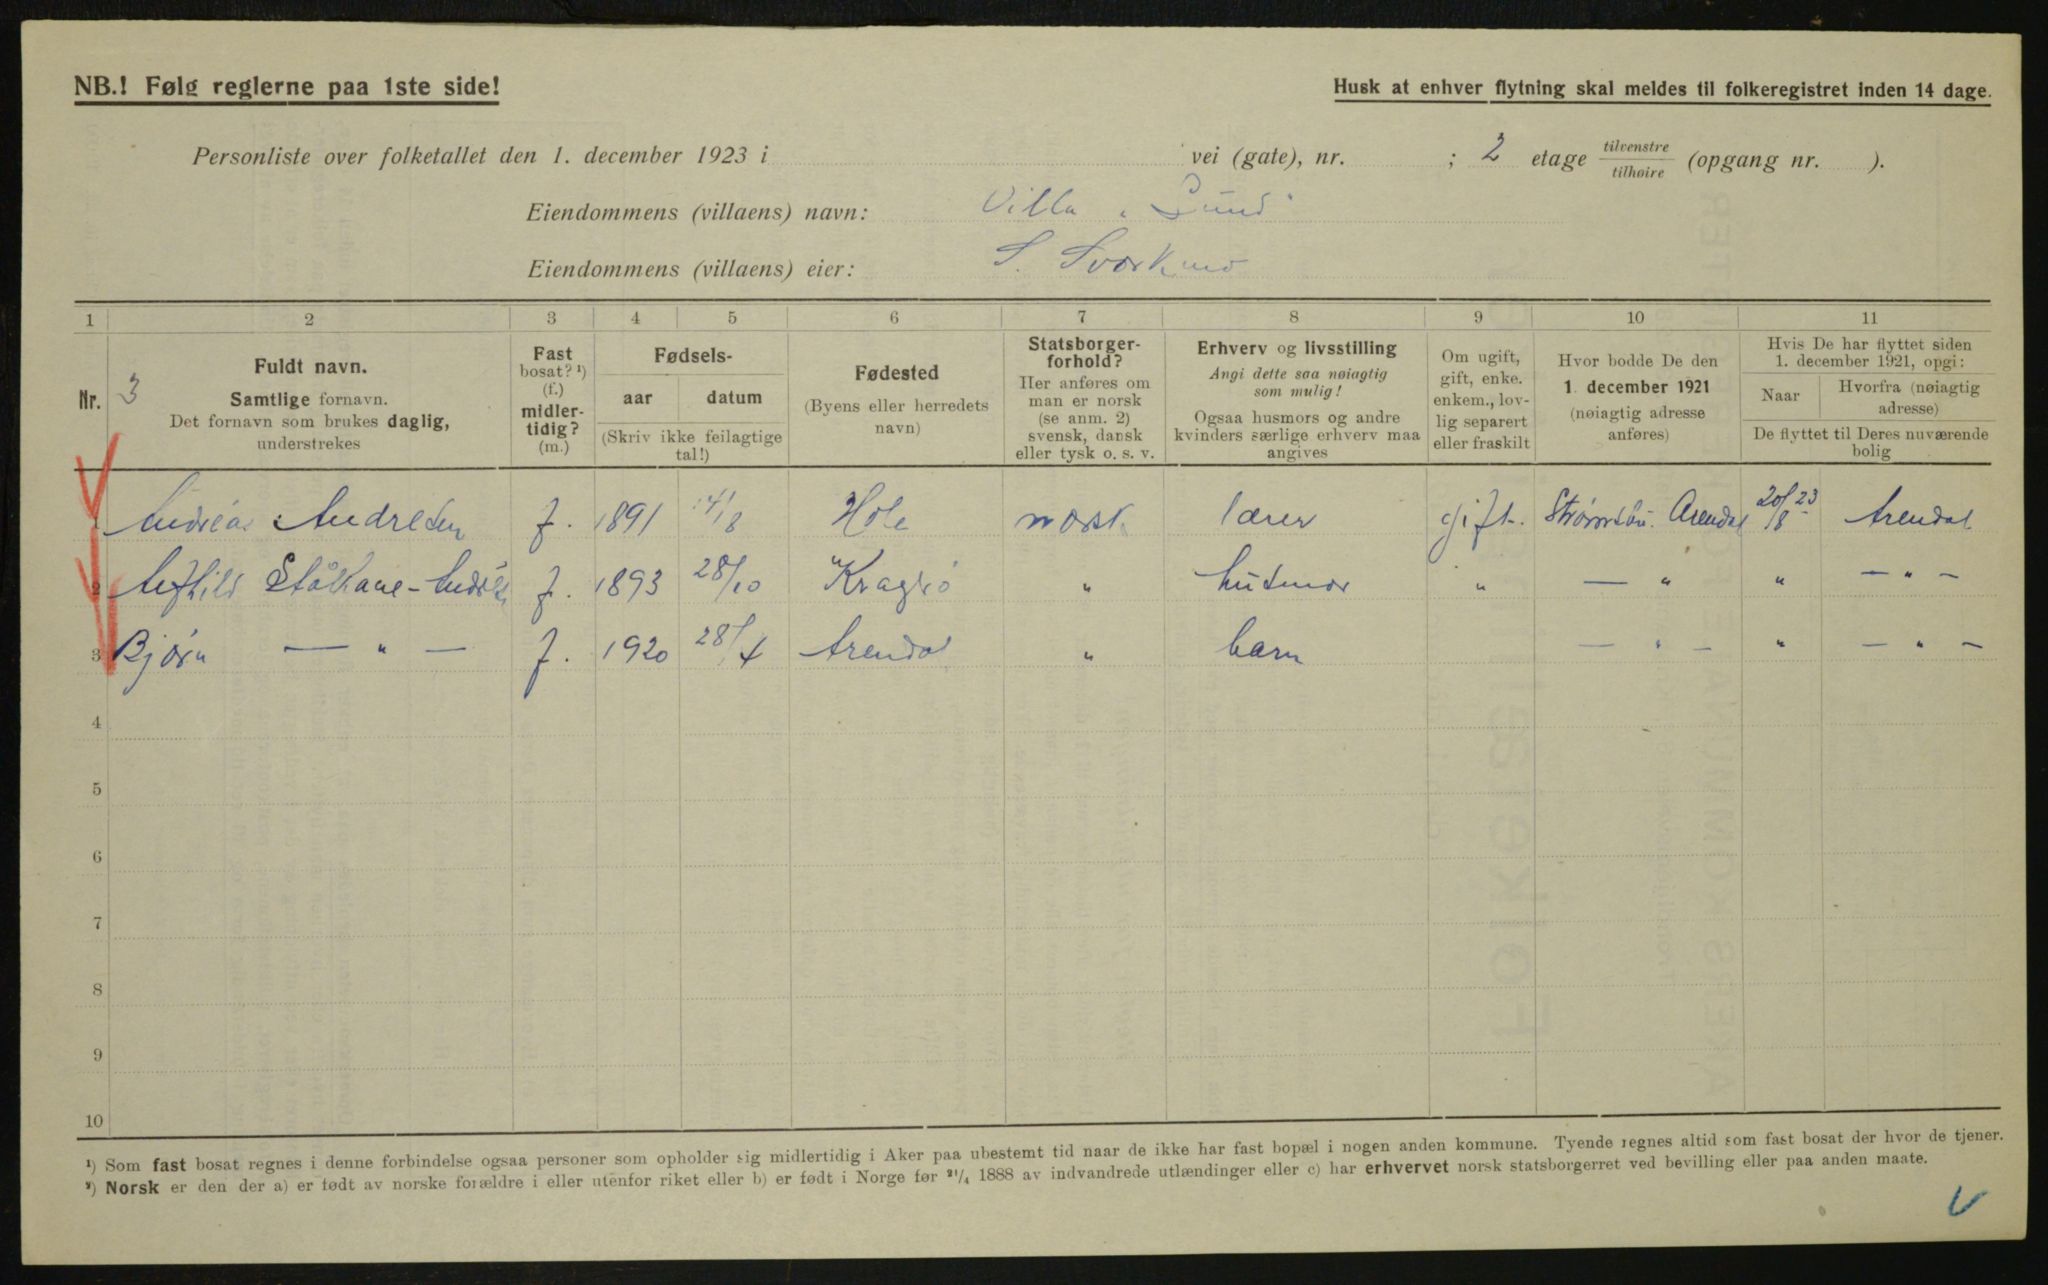 NB.! Følg reglerne paa 1ste side!
Husk at enhver flytning skal meldes til folkeregistret inden 14 dage.
Personliste over folketallet den 1. december 1923 i vei (gate), nr. ; 2 etage tilvenstre tilhøire (opgang nr. ).
Eiendommens (villaens) navn: Villa "Lund"
Eiendommens (villaens) eier: S. Svorkmo
1 2 3 4 5 6 7 8 9 10 11
Nr.
3
Fuldt navn.
Samtlige fornavn.
Det fornavn som brukes daglig,
understrekes
Fast
bosat? ¹)
(f.)
midler-
tidig?
(m.)
Fødsels-
aar datum
(Skriv ikke feilagtige
tal!)
Fødested
(Byens eller herredets
navn)
Statsborger-
forhold?
Her anføres om
man er norsk
(se anm. 2)
svensk, dansk
eller tysk o. s. v.
Erhverv og livsstilling
Angi dette saa nøiagtig
som mulig!
Ogsaa husmors og andre
kvinders særlige erhverv maa
angives
Om ugift,
gift, enke.
enkem., lov-
lig separert
eller fraskilt
Hvor bodde De den
1. december 1921
(nøiagtig adresse
anføres)
Hvis De har flyttet siden
1. december 1921, opgi:
Naar Hvorfra (nøiagtig
adresse)
De flyttet til Deres nuværende
bolig
1 Andreas Andresen f. 1891 14/8 Hole norsk lærer gift. Arendal 20/8 23 Arendal
2 Stålkane-Andresen f. 1893 28/10 Kragerø " husmor " — " " — " —
3 Bjørn — " — f. 1920 28/4 Arendal " barn — " — " — " —
4
5
6
7
8
9
10
¹) Som fast bosat regnes i denne forbindelse ogsaa personer som opholder sig midlertidig i Aker paa ubestemt tid naar de ikke har fast bopæl i nogen anden kommune. Tyende regnes altid som fast bosat der hvor de tjener.
²) Norsk er den der a) er født av norske forældre i eller utenfor riket eller b) er født i Norge før ²¹/₄ 1888 av indvandrede utlændinger eller c) har erhvervet norsk statsborgerret ved bevilling eller paa anden maate.